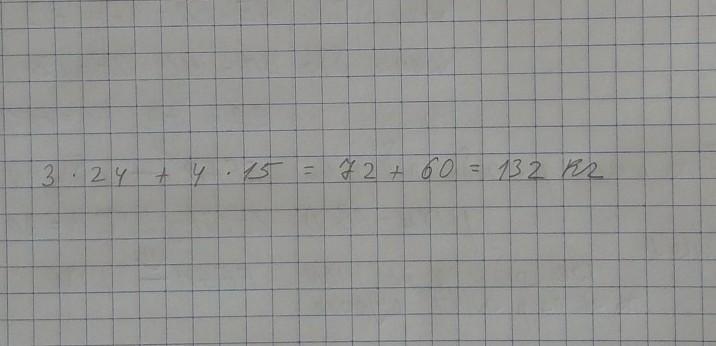 3 · 24 + 4 · 15 = 72 + 60 = 132 кг